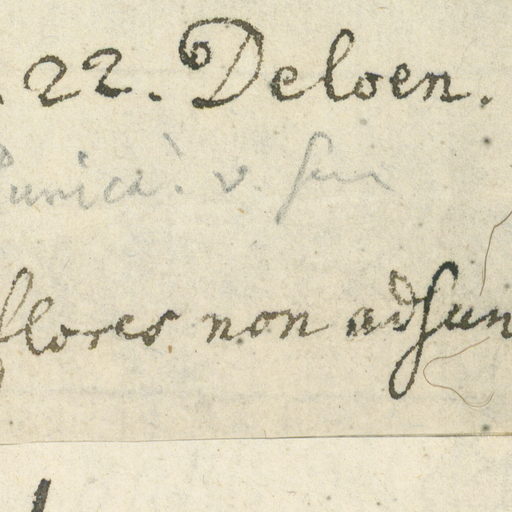 22. Deloen.
Punica? v.
flores non adsun